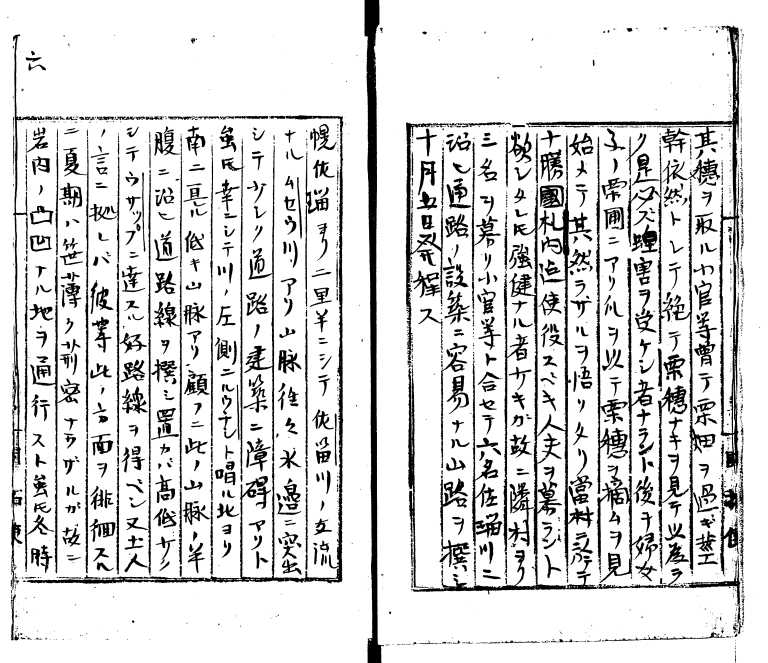 其穂ヲ取ル小官等曽テ粟畑ヲ過ギ莖
幹依然トシテ絶テ粟穂ナキヲ見テ以為ラ
ク是必ズ蝗害ヲ受ケシ者ナラント後チ婦女
子ノ粟圃ニアリ爪ヲ以テ粟穂ヲ摘ムヲ見
始メテ其然ラザルヲ悟リタリ當村ニ於テ
十勝國札内迠使役スベキ人夫ヲ募ラント
欲シタレ𪜈強健ナル者ナキガ故ニ隣村ヨリ
三名ヲ募リ小官等ト合セテ六名佐瑠川ニ
沿ヒ通路ノ設築ニ容易ナル山路ヲ撰ミ
十月五日発程ス
六
幌佐瑠ヨリ二里半ニシテ佐瑠川ノ支流
ナルムセウ川アリ山脈往々水邉ニ突出
シテ少シク道路ノ建築ニ障碍アリト
雖𪜈幸ニシテ川ノ左側ニルウチント唱ル北ヨリ
南ニ亘ル低キ山脈アリ顧フニ此ノ山脈ノ半
腹ニ沿ヒ道路線ヲ撰ミ置カバ高低ナク
シテウサップニ達スル好路線ヲ得ベシ又土人
ノ言ニ拠レバ彼等此ノ方面ヲ徘徊スル
ニ夏期ハ笹薄ク茂密ナラザルガ故ニ
岩内ノ凸凹ナル地ヲ通行スト雖𪜈冬時